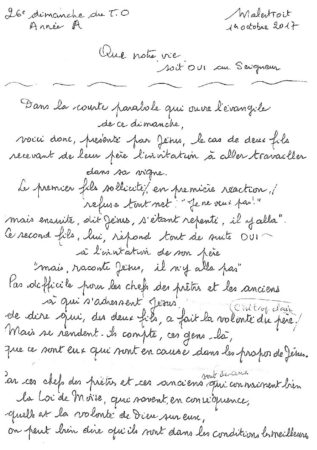 26e dimanche du T.O
Année A
Malestroit
1er octobre 2017
Que notre vie
soit OUI au Seigneur
Dans la courte parabole qui ouvre l'évangile
de ce dimanche,
voici donc, présenté par Jésus, le cas de deux fils
recevant de leur père l'invitation à aller travailler
dans sa vigne.
Le premier fils sollicité, en première réaction,
refuse tout net "Je ne veux pas!"
mais ensuite, dit Jésus, s'étant repenti, il y alla".
Ce second fils, lui, répond tout de suite OUI
à l'invitation de son père
"mais, raconte Jésus, il n'y alla pas"
Pas difficile pour les chefs des prêtres et les anciens
à qui s'adressent Jésus,
C'est trop clair
de dire qui, des deux fils, a fait la volonté du père!
Mais se rendent-ils compte, ces gens-là,
que ce sont eux qui sont en cause dans les propos de Jésus.
Car ces chefs des prêtres et ces anciens qui connaissent bien
la Loi de Moïse, que savent, en conséquence,
quelle est la volonté de Dieu sur eux,
on peut bien dire qu'ils sont dans les conditions les meilleures